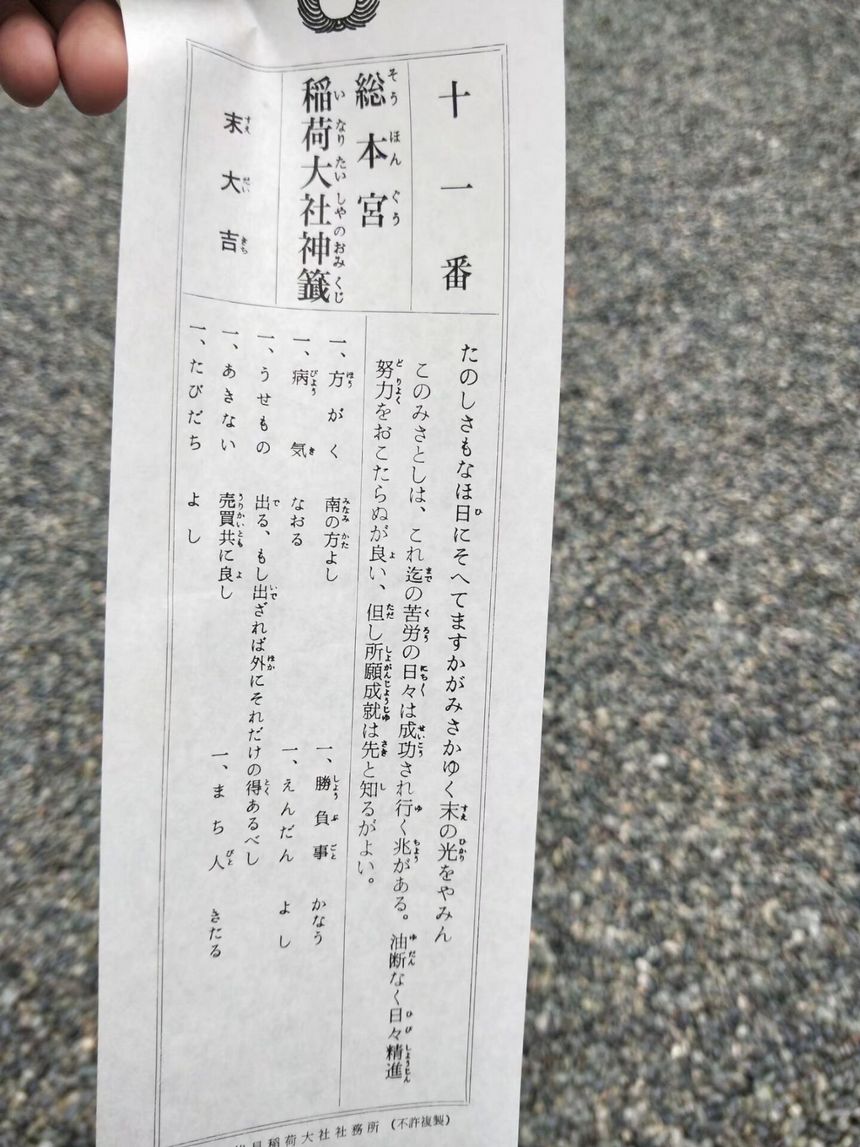 十一番
総本宮
稲荷大社神籤
末大吉
たのしさもなほ日にそへてますかがみさかゆく末の光をやみん
このみさとしは、これ迄の苦労の日々は成功され行く兆がある。油断なく日々精進
努力をおこたらぬが良い、但し所願成就は先と知るがよい。
一、方がく 南の方よし
一、勝負事 かなう
一、病気 なおる
一、えんだん よし
一、うせもの 出る、もし出ざれば外にそれだけの得あるべし
一、あきない 売買共に良し
一、まち人 きたる
一、たびだち よし
稲荷大社社務所(不許複製)